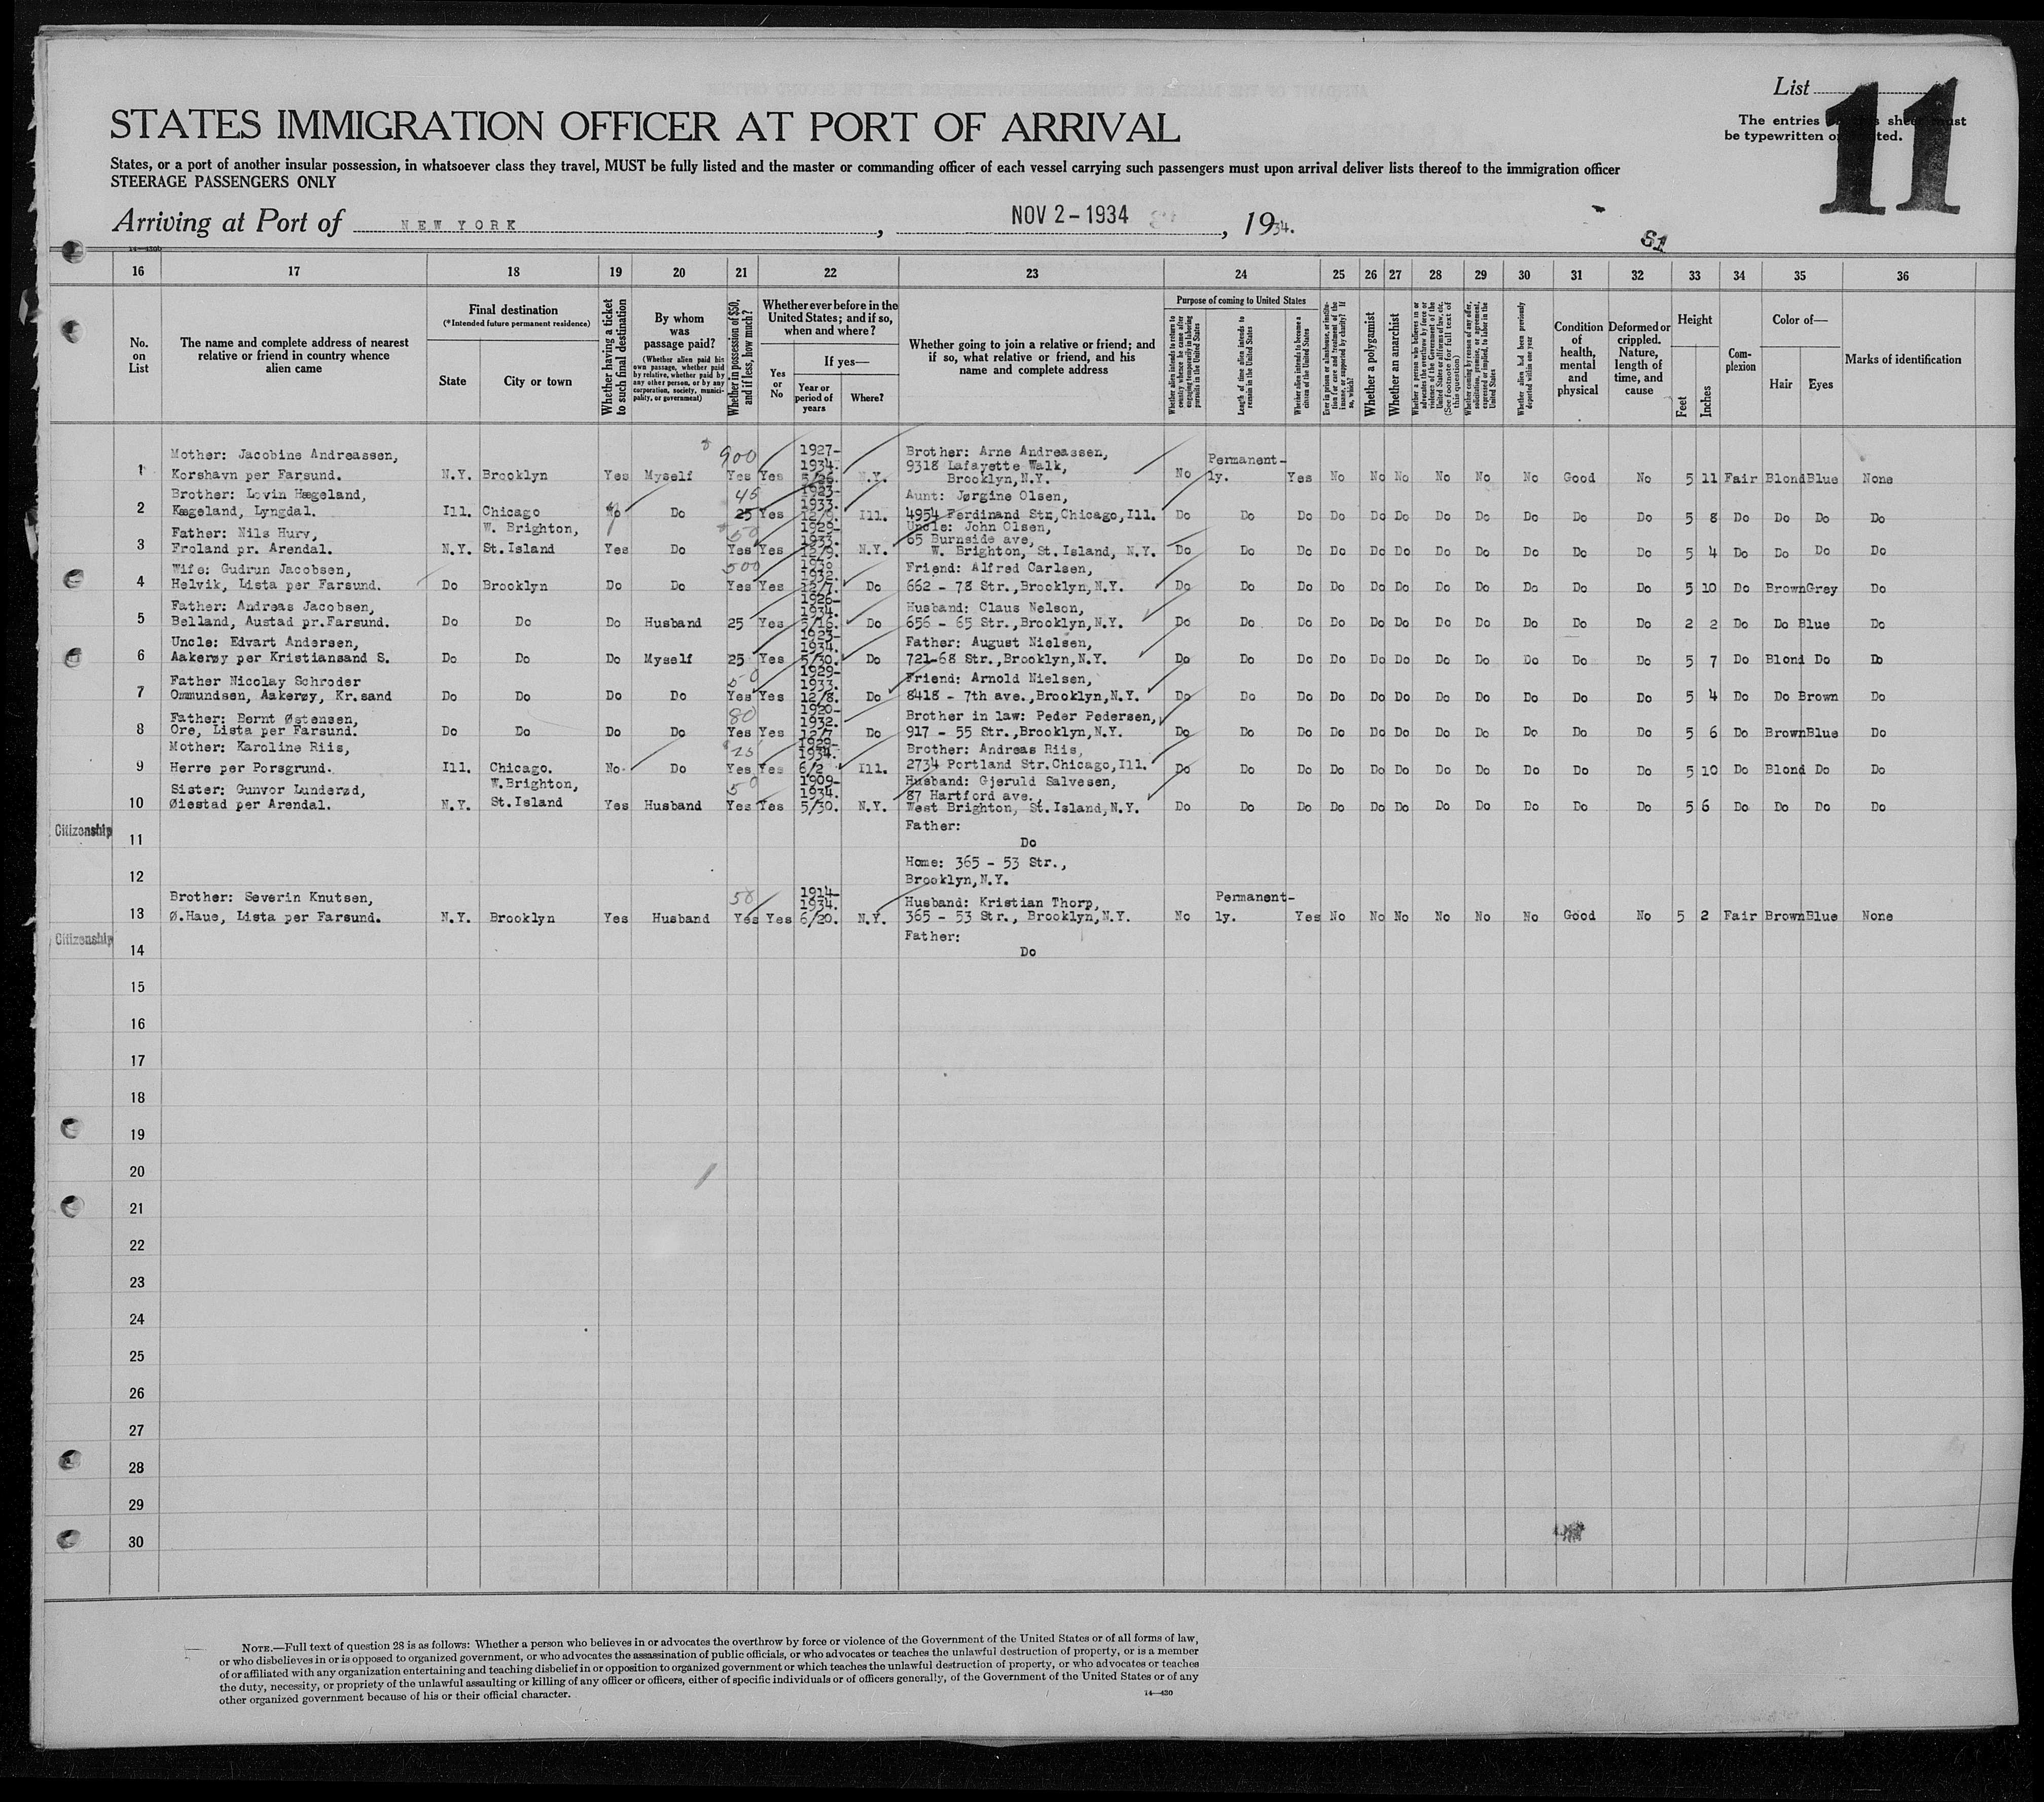 List
11
The entries on this sheet must
be typewritten or printed.
STATES IMMIGRATION OFFICER AT PORT OF ARRIVAL
States, or a port of another insular possession, in whatsoever class they travel, MUST be fully listed and the master or commanding officer of each vessel carrying such passengers must upon arrival deliver lists thereof to the immigration officer
STEERAGE PASSENGERS ONLY
Arriving at Port of NEW YORK, NOV 2 - 1934, 1934.
61
14-430b
16 17 18 19 20 21 22 23 24 25 26 27 28 29 30 31 32 33 34 35 36
No. on List
The name and complete address of nearest relative or friend in country whence alien came
Final destination
(*Intended future permanent residence)
State
City or town
Whether having a ticket to such final destination
By whom was passage paid?
(Whether alien paid his own passage, whether paid by relative, whether paid by any other person, or by any corporation, society, municipality, or government)
Whether in possession of $50, and if less, how much?
Whether ever before in the United States; and if so, when and where?
Yes or No
If yes—
Year or period of years
Where?
Whether going to join a relative or friend; and if so, what relative or friend, and his name and complete address
Purpose of coming to United States
Whether alien intends to return to country whence he came after engaging temporarily in laboring pursuits in the United States
Length of time alien intends to remain in the United States
Whether alien intends to become a citizen of the United States
Ever in prison or almshouse, or institution for care and treatment of the insane, or supported by charity? If so, which?
Whether a polygamist
Whether an anarchist
Whether a person who believes in or advocates the overthrow by force or violence of the Government of the United States or all forms of law, etc. (See footnote for full text of this question)
Whether coming by reason of any offer, solicitation, promise, or agreement, expressed or implied, to labor in the United States
Whether alien had been previously deported within one year
Condition of health, mental and physical
Deformed or crippled. Nature, length of time, and cause
Height
Feet
Inches
Complexion
Color of—
Hair
Eyes
Marks of identification
Mother: Jacobine Andreassen, 900 1927- Brother: Arne Andreassen,
1934. 9318 Lafayette Walk, Permanent-
1 Korshavn per Farsund. N.Y. Brooklyn Yes Myself Yes Yes 5/26. N.Y. Brooklyn,N.Y. No ly. Yes No No No No No No Good No 5 11 Fair Blond Blue None
Brother: Lovin Hægeland, 45 1923- Aunt: Jørgine Olsen,
1933.
2 Kægeland, Lyngdal. Ill. Chicago No Do 25 Yes 12/9. Ill. 4954 Ferdinand Str,Chicago,Ill. Do Do Do Do Do Do Do Do Do Do Do 5 8 Do Do Do Do
Father: Nils Hurv, W. Brighton, 50 1929- Uncle: John Olsen,
1933. 65 Burnside ave,
3 Froland pr. Arendal. N.Y. St.Island Yes Do Yes Yes 12/9. N.Y. W. Brighton, St.Island, N.Y. Do Do Do Do Do Do Do Do Do Do Do 5 4 Do Do Do Do
Wife: Gudrun Jacobsen, 500 1930 Friend: Alfred Carlsen,
1932.
4 Helvik, Lista per Farsund. Do Brooklyn Do Do Yes Yes 12/7. Do 662 - 78 Str.,Brooklyn,N.Y. Do Do Do Do Do Do Do Do Do Do Do 5 10 Do Brown Grey Do
Father: Andreas Jacobsen, 1926- Husband: Claus Nelson,
1934.
5 Belland, Austad pr.Farsund. Do Do Do Husband 25 Yes 5/16. Do 656 - 65 Str.,Brooklyn,N.Y. Do Do Do Do Do Do Do Do Do Do Do 2 2 Do Do Blue Do
Uncle: Edvart Andersen, 1923- Father: August Nielsen,
1934.
6 Aakerøy per Kristiansand S. Do Do Do Myself 25 Yes 5/30. Do 721-68 Str.,Brooklyn,N.Y. Do Do Do Do Do Do Do Do Do Do Do 5 7 Do Blond Do Do
Father Nicolay Schroder 50 1929- Friend: Arnold Nielsen,
1933.
7 Ommundsen, Aakerøy, Kr.sand Do Do Do Do Yes Yes 12/8. Do 8418 - 7th ave.,Brooklyn,N.Y. Do Do Do Do Do Do Do Do Do Do Do 5 4 Do Do Brown Do
Father: Bernt Østensen, 80 1920- Brother in law: Peder Pedersen,
1932.
8 Ore, Lista per Farsund. Do Do Do Do Yes Yes 12/7 Do 917 - 55 Str.,Brooklyn,N.Y. Do Do Do Do Do Do Do Do Do Do Do 5 6 Do Brown Blue Do
Mother: Karoline Riis, 25 1929- Brother: Andreas Riis,
1934.
9 Herre per Porsgrund. Ill. Chicago. No Do Yes Yes 6/2 Ill. 2734 Portland Str.Chicago,Ill. Do Do Do Do Do Do Do Do Do Do Do 5 10 Do Blond Do Do
Sister: Gunvor Lunderød, W.Brighton, 50 1909- Husband: Gjeruld Salvesen,
1934. 87 Hartford ave.,
10 Øiestad per Arendal. N.Y. St.Island Yes Husband Yes Yes 5/30. N.Y. West Brighton, St.Island,N.Y. Do Do Do Do Do Do Do Do Do Do Do 5 6 Do Do Do Do
Citizenship Father:
11 Do
Home: 365 - 53 Str.,
12 Brooklyn,N.Y.
Brother: Severin Knutsen, 50 1914- Permanent-
1934. Husband: Kristian Thorp,
13 Ø.Haue, Lista per Farsund. N.Y. Brooklyn Yes Husband Yes Yes 6/20. N.Y. 365 - 53 Str., Brooklyn,N.Y. No ly. Yes No No No No No No Good No 5 2 Fair Brown Blue None
Citizenship Father:
14 Do
15
16
17
18
19
20
21
22
23
24
25
26
27
28
29
30
NOTE.—Full text of question 28 is as follows: Whether a person who believes in or advocates the overthrow by force or violence of the Government of the United States or of all forms of law,
or who disbelieves in or is opposed to organized government, or who advocates the assassination of public officials, or who advocates or teaches the unlawful destruction of property, or is a member
of or affiliated with any organization entertaining and teaching disbelief in or opposition to organized government or which teaches the unlawful destruction of property, or who advocates or teaches
the duty, necessity, or propriety of the unlawful assaulting or killing of any officer or officers, either of specific individuals or of officers generally, of the Government of the United States or of any
other organized government because of his or their official character.
14-430